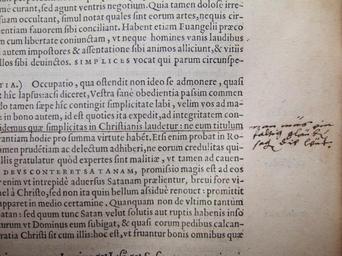 me curant, sed agunt ventris negotium. Quia tamen dolose irre-
iam occultant, simul notat quales sint eorum artes, nequis cir-
entiam fauorem sibi conciliant. Habent etiam Euangelii præco
em cum libertate coniunctam, vt neque homines vanis laudibus
i autem impostores & assentatione sibi animos alliciunt, & vitiis
llos sibi deuinctos. SIMPLICES vocat qui parum circunspe-
TIA.) Occupatio, qua ostendit non ideo se admonere, quasi
t hic lapsus: acsi diceret, Vestra sanè obedientia passim commen
do tamen sæpe hîc contingit simplicitate labi, velim vos ad ma-
in bono autem, id est quoties ita expedit, ad integritatem con-
idemus quæ simplicitas in Christianis laudetur: ne eum titulum
erantiam hodie pro summa virtute habēt. Etsi enim probat in Ro-
amen prudentiam ac delectum adhiberi, ne eorum credulitas qui-
illis gratulatur quòd expertes sint malitiæ, vt tamen ad cauen-
DEVS CONTERET SATANAM, promissio magis est ad eos
r enim vt intrepidè aduersus Satanam prælientur, breui fore vi-
el à Christo, sed non ita quin bellum assiduè renouet: promittit
apparet in medio certamine. Quanquam non de vltimo tantùm
atan: sed quum tunc Satan velut solutis aut ruptis habenis inso
urum vt Dominus eum subigat, & quasi eorum pedibus calcan-
ratia Christi sit cum illis: hoc est, vt fruantur bonis omnibus quæ